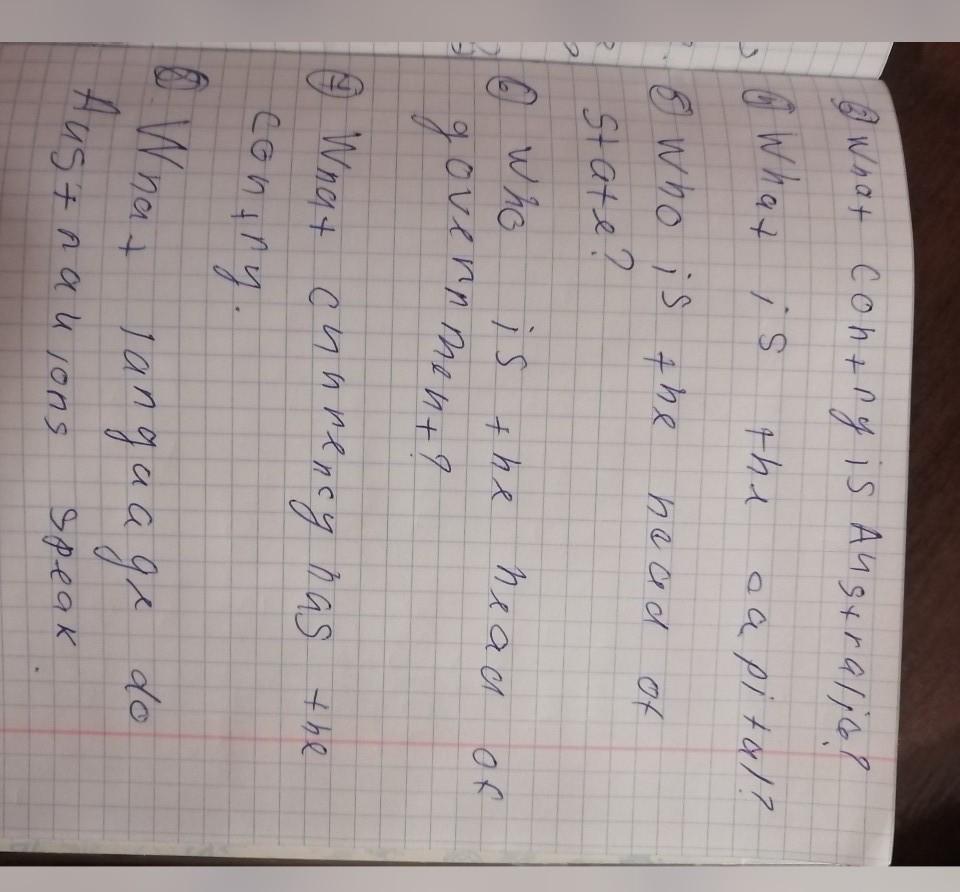 ③ What contry is Australia?
④ What is the capital?
⑤ Who is the head of
state?
⑥ Who is the head of
government?
⑦ What currency has the
contry.
⑧ What language do
Australions speak.